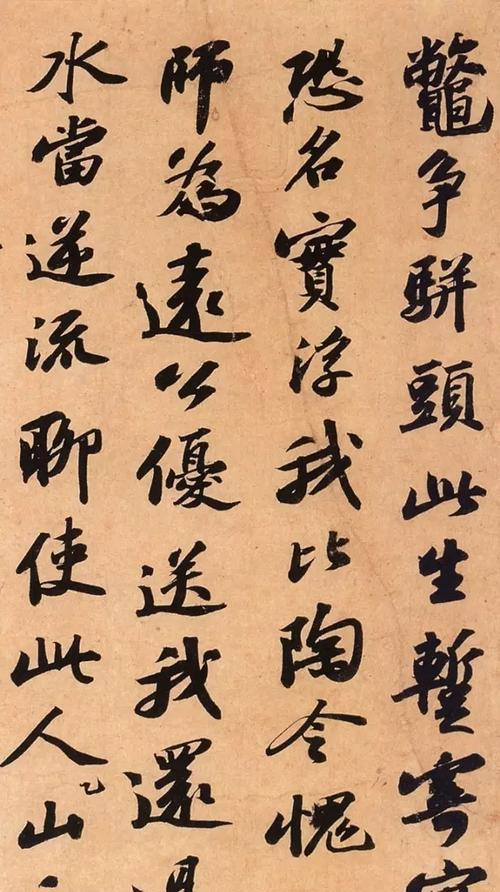 鼈争駢頭此生暫寄
恐名實浮我比陶令愧
師為遠公優送我還
水當逆流聊使此人山